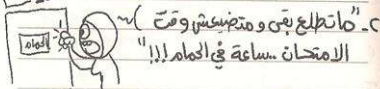 ج- "ما تطلع بقى ومتضيعش وقت
الامتحان .. ساعة في الحمام !!!"
الحمام